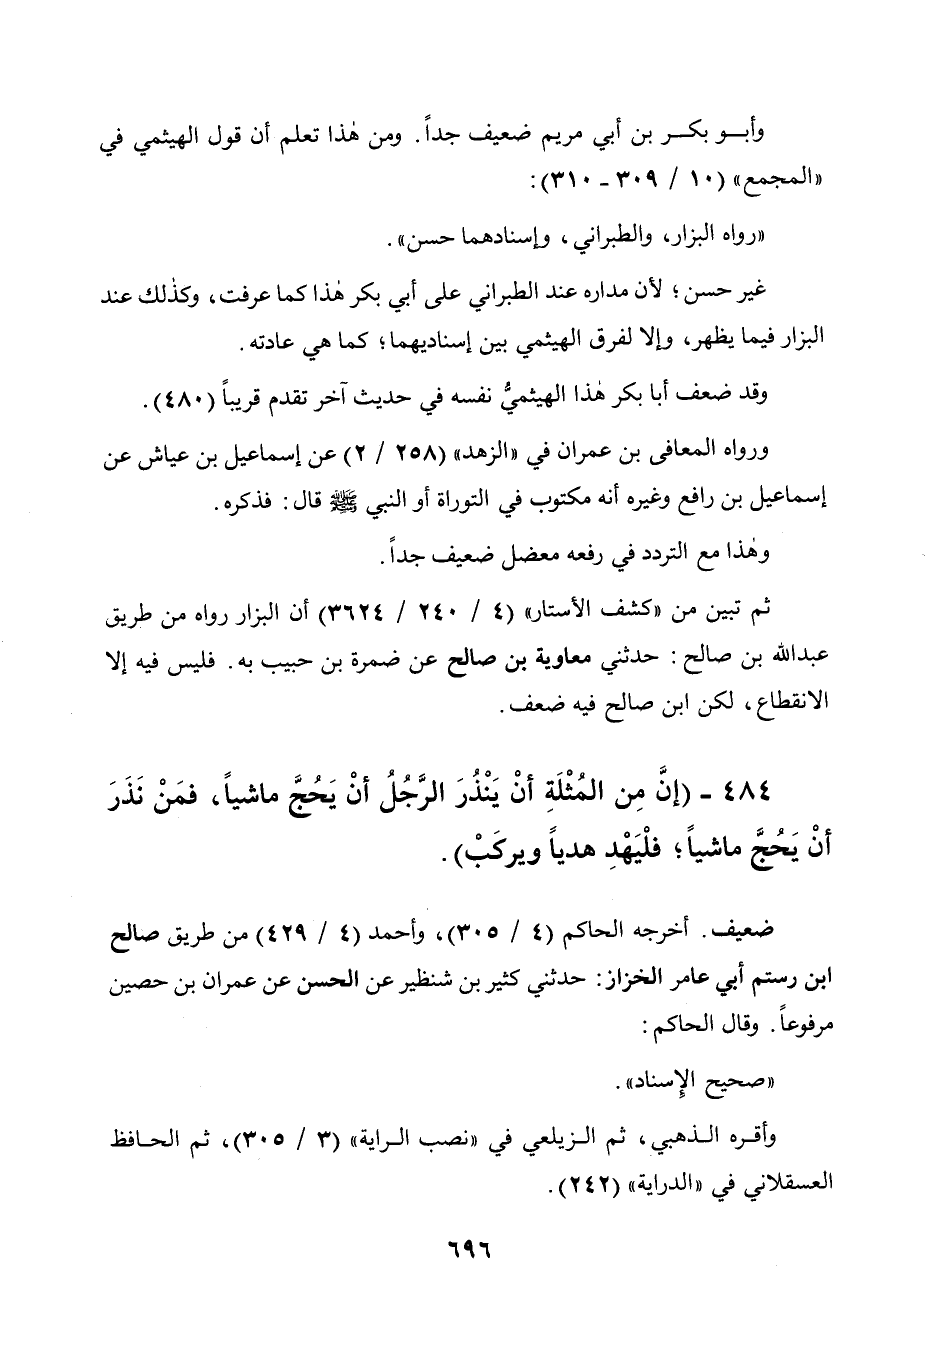 وأبــو بكــر بن أبي مريم ضعيف جداً. ومن هٰذا تعلم أن قول الهيثمي في
«المجمع» (١٠ / ٣٠٩ ـ ٣١٠):
«رواه البزار، والطبراني، وإسنادهما حسن».
غير حسن؛ لأن مداره عند الطبراني على أبي بكر هٰذا كما عرفت، وكذٰلك عند
البزار فيما يظهر، وإلا لفرق الهيثمي بين إسناديهما؛ كما هي عادته.
وقد ضعف أبا بكر هٰذا الهيثميُّ نفسه في حديث آخر تقدم قريباً (٤٨٠).
ورواه المعافى بن عمران في «الزهد» (٢٥٨ / ٢) عن إسماعيل بن عياش عن
إسماعيل بن رافع وغيره أنه مكتوب في التوراة أو النبي ﷺ قال: فذكره.
وهٰذا مع التردد في رفعه معضل ضعيف جداً.
ثم تبين من «كشف الأستار» (٤ / ٢٤٠ / ٣٦٢٤) أن البزار رواه من طريق
عبدالله بن صالح: حدثني معاوية بن صالح عن ضمرة بن حبيب به. فليس فيه إلا
الانقطاع، لكن ابن صالح فيه ضعف.
٤٨٤ ـ (إنَّ مِن المُثْلَةِ أنْ يَنْذُرَ الرَّجُلُ أنْ يَحُجَّ ماشياً، فمَنْ نَذَرَ
أنْ يَحُجَّ ماشياً؛ فلْيَهْدِ هدياً ويركَبْ).
ضعيف. أخرجه الحاكم (٤ / ٣٠٥)، وأحمد (٤ / ٤٢٩) من طريق صالح
ابن رستم أبي عامر الخزاز: حدثني كثير بن شنظير عن الحسن عن عمران بن حصين
مرفوعاً. وقال الحاكم:
«صحيح الإسناد».
وأقـره الـذهبي، ثم الـزيلعي في «نصب الـراية» (٣ / ٣٠٥)، ثم الحـافظ
العسقلاني في «الدراية» (٢٤٢).
٦٩٦